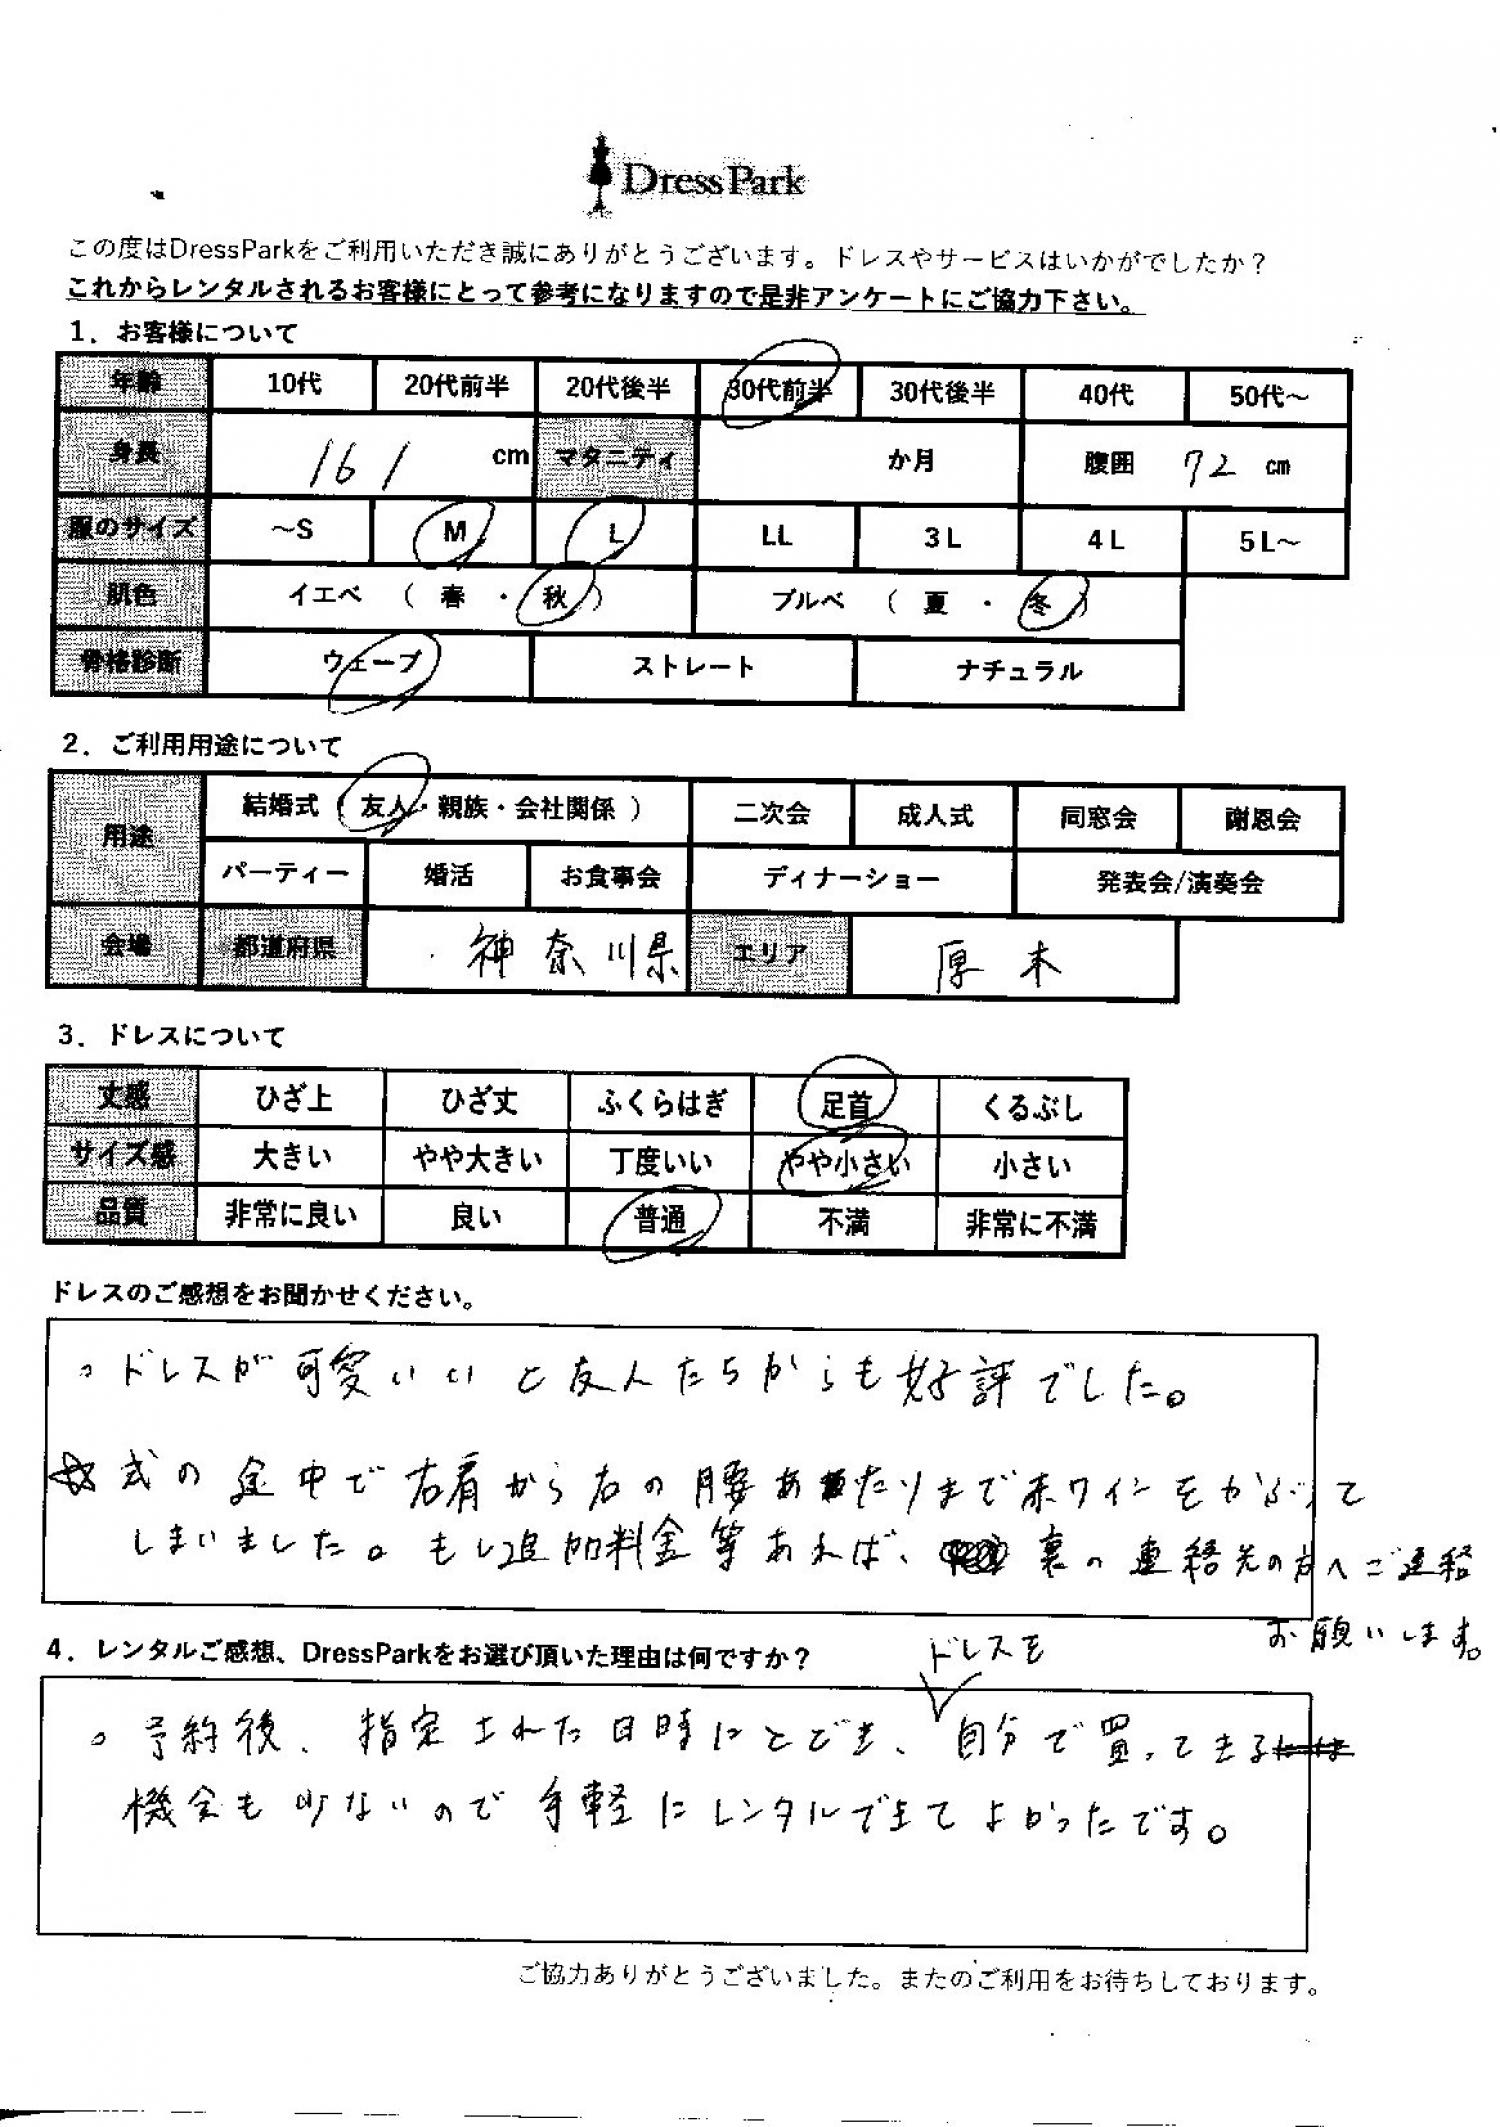 DressPark
この度はDressParkをご利用いただき誠にありがとうございます。ドレスやサービスはいかがでしたか？
これからレンタルされるお客様にとって参考になりますので是非アンケートにご協力下さい。
1．お客様について
年齢 10代 20代前半 20代後半 30代前半 30代後半 40代 50代～
身長 161 cm マタニティ か月 腹囲 72 cm
服のサイズ ～S M L LL 3L 4L 5L～
肌色 イエベ （ 春 ・ 秋 ） ブルベ （ 夏 ・ 冬 ）
骨格診断 ウェーブ ストレート ナチュラル
2．ご利用用途について
用途 結婚式（ 友人・親族・会社関係 ） 二次会 成人式 同窓会 謝恩会
パーティー 婚活 お食事会 ディナーショー 発表会/演奏会
会場 都道府県 神奈川県 エリア 厚木
3．ドレスについて
丈感 ひざ上 ひざ丈 ふくらはぎ 足首 くるぶし
サイズ感 大きい やや大きい 丁度いい やや小さい 小さい
品質 非常に良い 良い 普通 不満 非常に不満
ドレスのご感想をお聞かせください。
。ドレスが可愛いいと友人たちからも好評でした。
☆式の途中で右肩から右の腰あたりまで赤ワインをかぶって
しまいました。もし追加料金等あれば、裏の連絡先の方へご連絡
お願いします。
4．レンタルご感想、DressParkをお選び頂いた理由は何ですか？
ドレスを
。予約後、指定された日時にとどき、自分で買ってきる
機会も少ないので手軽にレンタルできてよかったです。
ご協力ありがとうございました。またのご利用をお待ちしております。